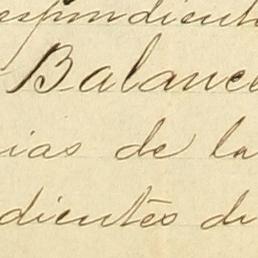 spondient
Balance
ias de la
dientes de